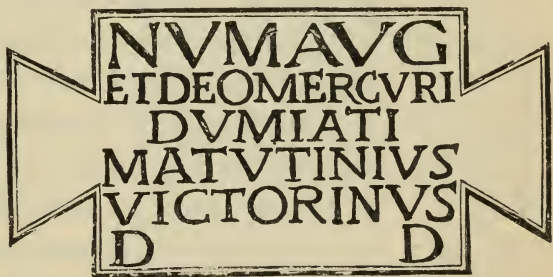 NVMAVG
ETDEOMERCVRI
DVMIATI
MATVTINIVS
VICTORINVS
D D